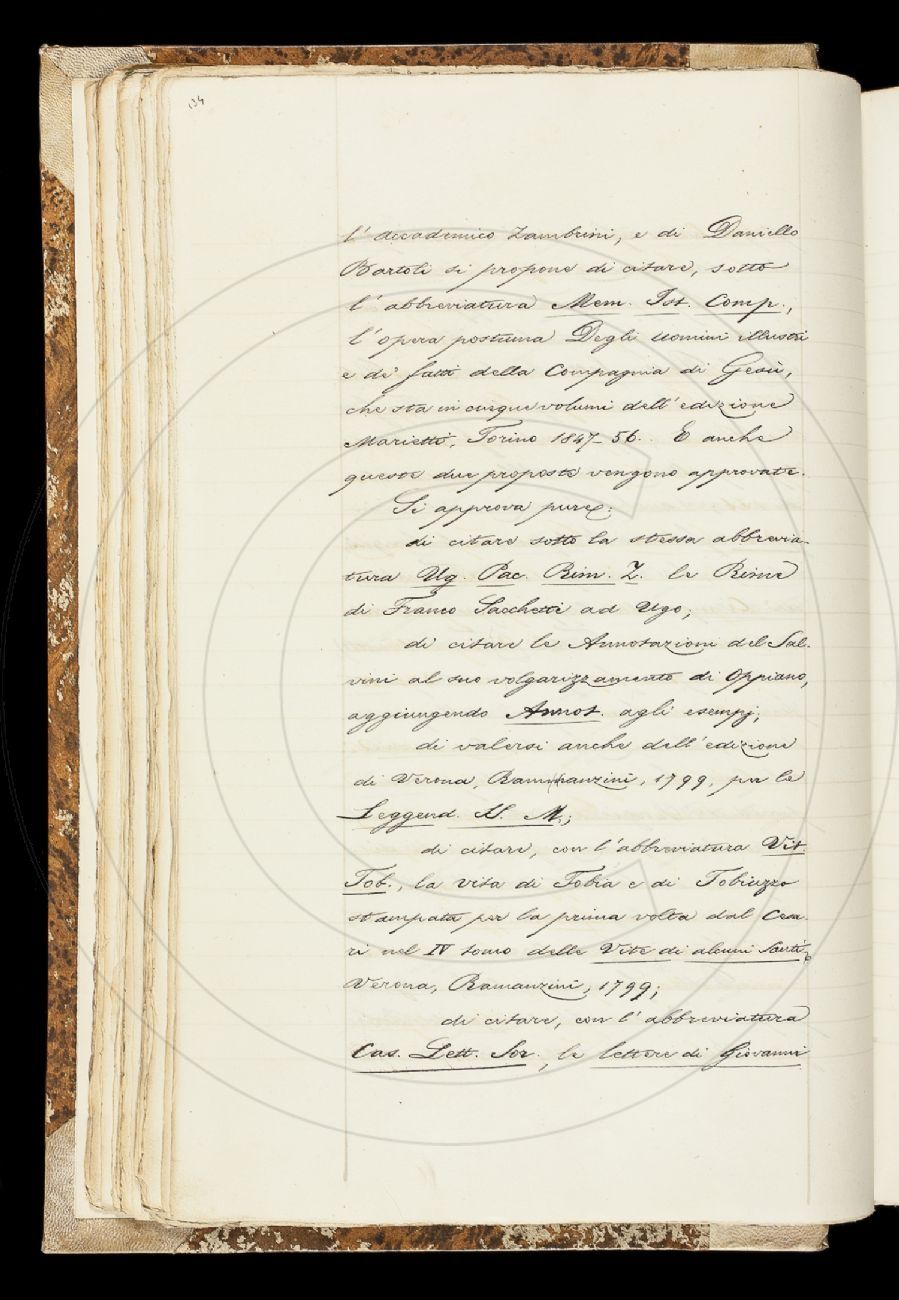 134
l'accademico Zambrini, e di Daniello
Bartoli si propone di citare, sotto
l'abbreviatura Mem. Ist. Comp.,
l'opera postuma Degli uomini illustri
e de' fatti della Compagnia di Gesù,
che sta in cinque volumi dell'edizione
Marietti, Torino 1847-56. E anche
queste due proposte vengono approvate.
Si approva pure:
di citare sotto la stessa abbrevia-
tura Ug. Pac. Rim. Z. le Rime
di Franco Sacchetti ad Ugo;
di citare le Annotazioni del Sal-
vini al suo volgarizzamento di Oppiano,
aggiungendo Annot. agli esempj;
di valersi anche dell'edizione
di Verona, Rammanzini, 1799, per le
Leggend. S. M.;
di citare, con l'abbreviatura Vit.
Tob., la vita di Tobia e di Tobiuzzo
stampata per la prima volta dal Cesa-
ri nel IV tomo delle Vite di alcuni Santi,
Verona, Ramanzini, 1799;
di citare, con l'abbreviatura
Cas. Lett. Sor., le lettere di Giovanni